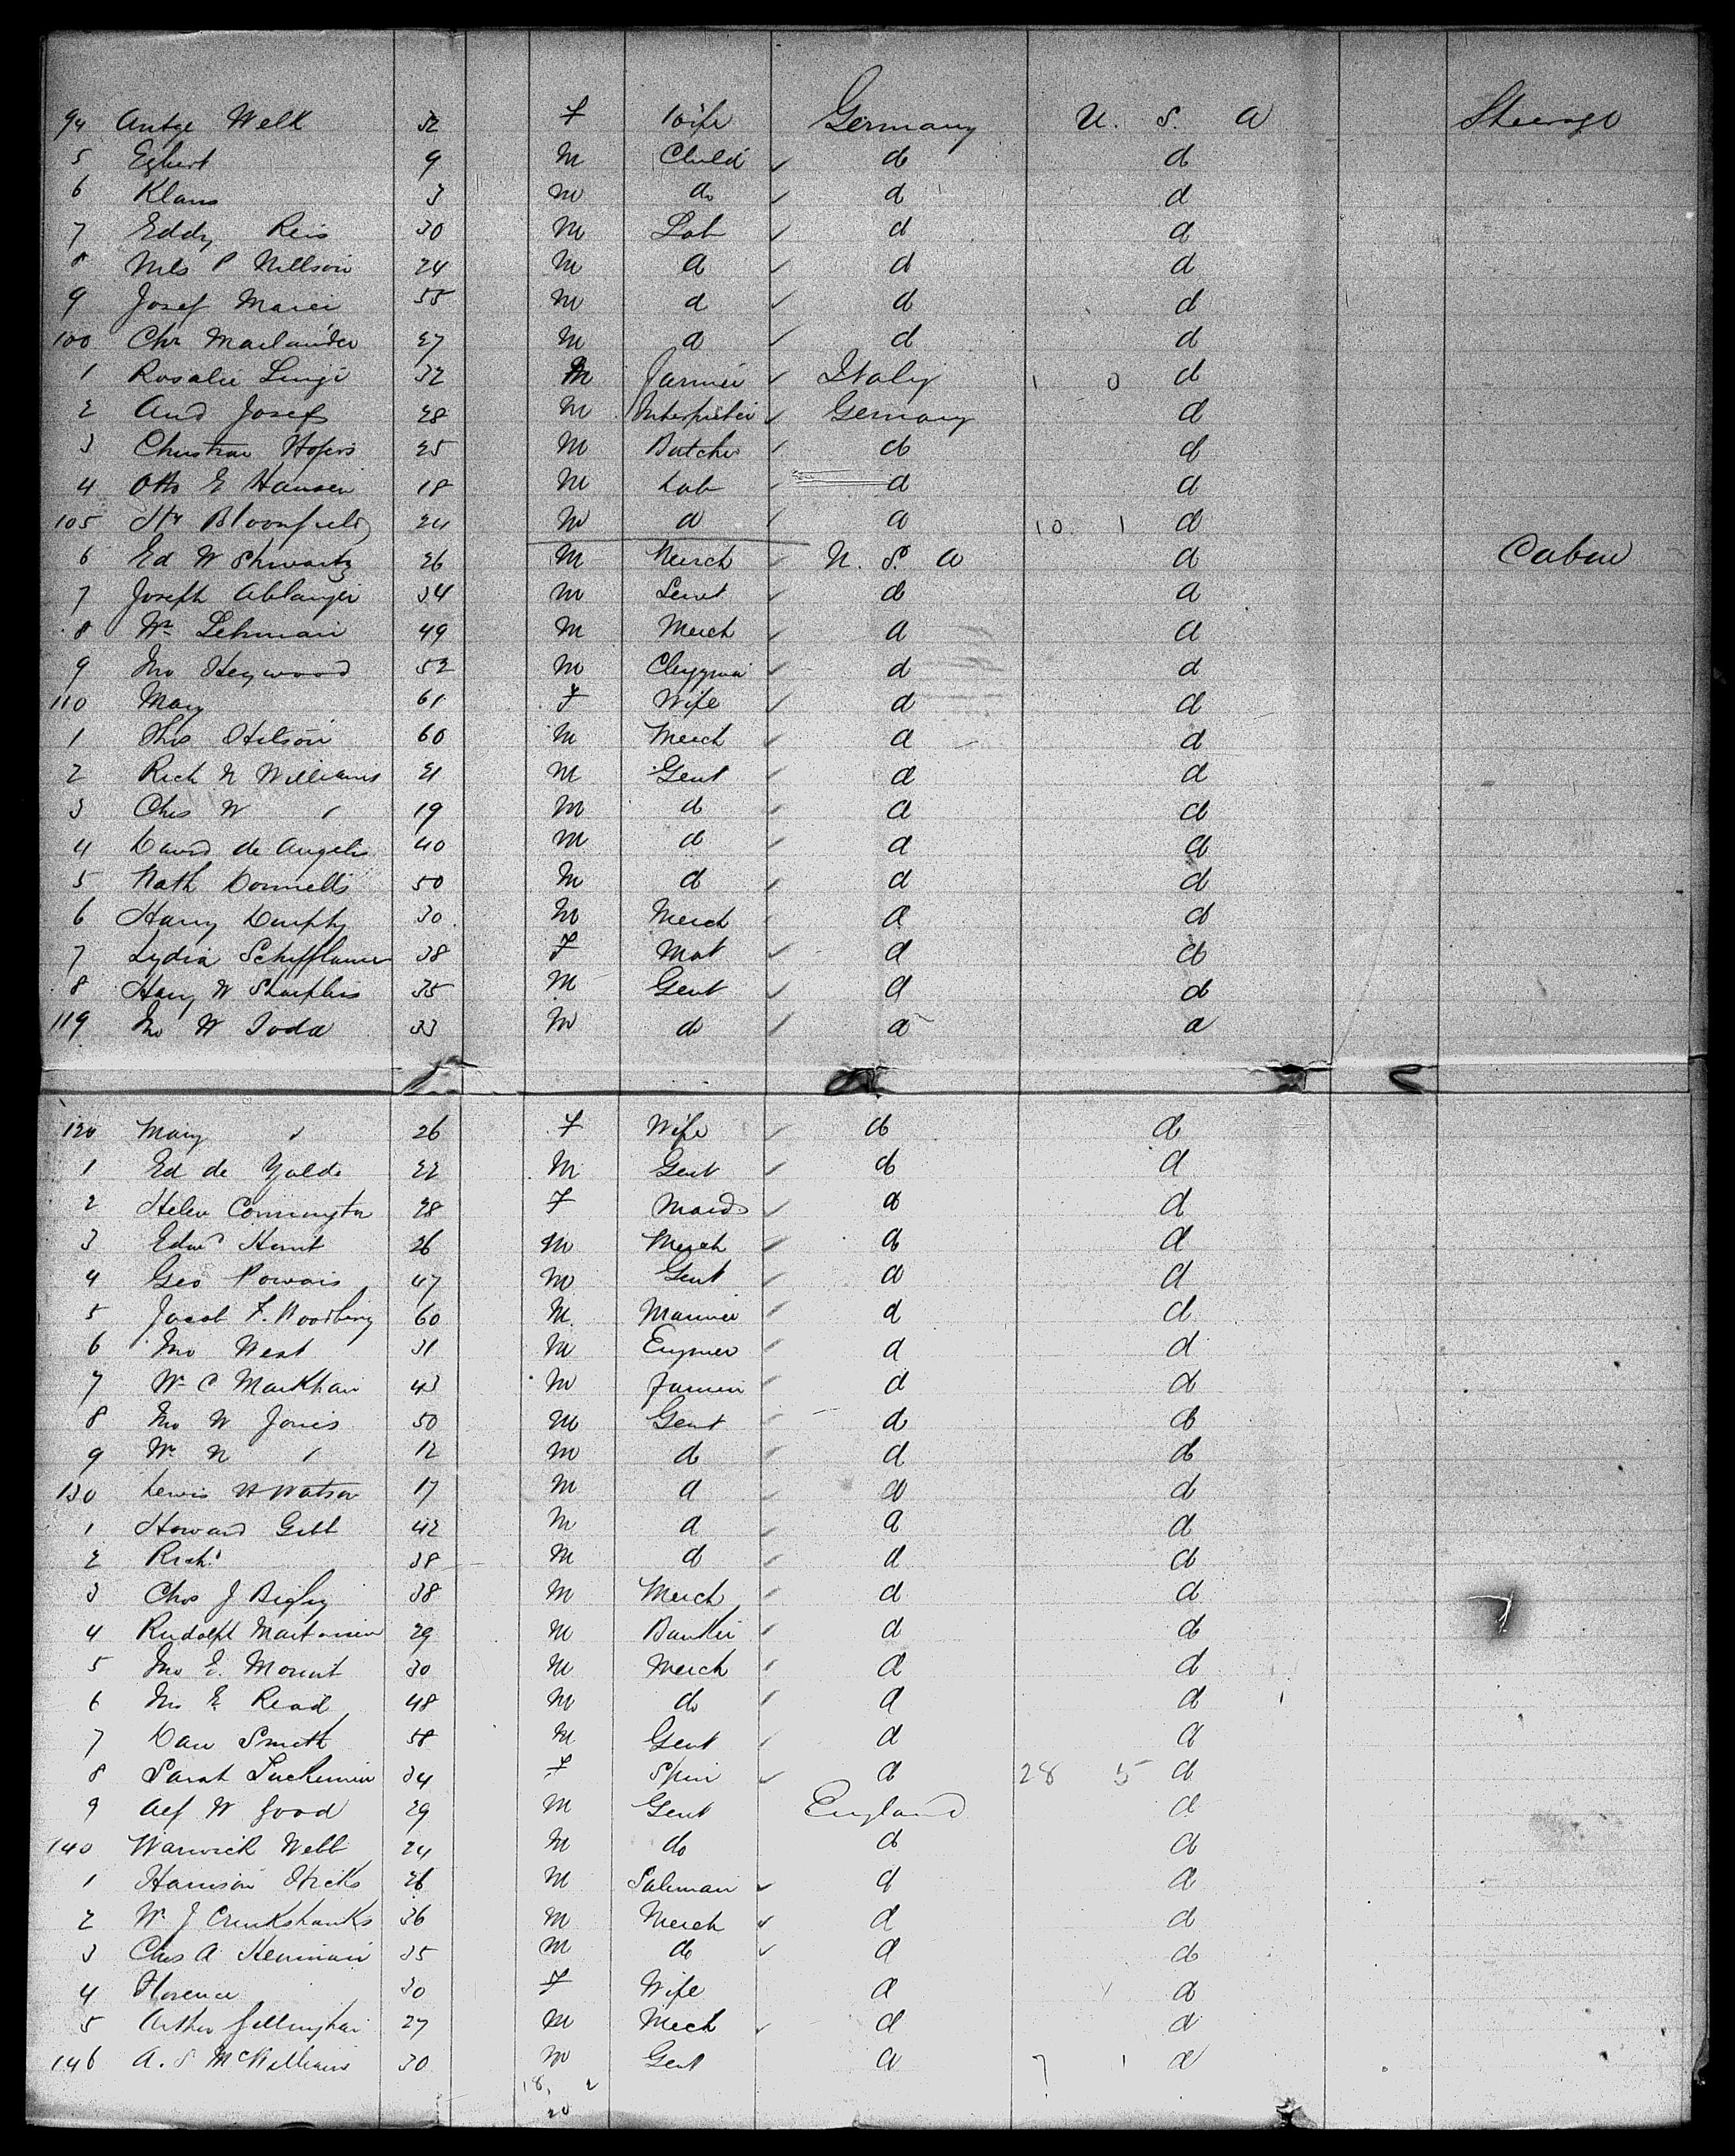 94 Antge Welk 32 F Wife Germany U. S. A Steerage
5 Egbert 9 M Child d d
6 Klaus 3 M do d d
7 Eddy Reis 30 M Lab d d
8 Nels P Nillson 24 M d d d
9 Josef Marei 55 M d d d
100 Chr Mailander 27 M d d d
1 Rosalie Luigi 32 M Farmer Italy 1 0 d
2 And Josef 28 M Interpreter Germany d
3 Christian Hofers 25 M Butcher do d
4 Otto E Hansen 18 M Lab d d
105 Hy Bloomfield 24 M d d 10 1 d
6 Ed W Shwartz 26 M Merch U. S. A d Cabin
7 Joseph Ablanger 34 M d d
8 Wm Lehman 49 M Merch d d
9 Jno Heywood 52 M Clergyman d d
110 Mary 61 F Wife d d
1 Thos Hilson 60 M Merch d d
2 Rich N Williams 21 M Gent d d
3 Chas W " 19 M do d d
4 David de Angelis 40 M d d d
5 Nath Donnells 50 M d d d
6 Harry Dunphy 30 M Merch d d
7 Lydia 38 F Mat d d
8 Harry W Sharpless 35 M Gent d d
119 Jno W Todd 33 M do d d
120 Mary " 26 F Wife do do
1 Ed de Yaldo 22 M Gent do d
2 Helen Connington 28 F Maid d d
3 Edwd Hunt 26 M Merch d d
4 Geo 47 M Gent d d
5 Jacob F. Woodbury 60 M Mariner d d
6 Jno West 31 M Engineer d d
7 Wm C Markham 43 M Farmer d d
8 Jno W Jones 50 M Gent d d
9 Wm N " 12 M do d d
130 Lewis H Watson 17 M d d d
1 Howard Gibb 42 M d d d
2 Richd 38 M d d d
3 Chas J Bigley 38 M Merch d d
4 Rudolph 29 M Banker d d
5 Jno E. Mount 30 M Merch d d
6 Jno E Read 48 M do d d
7 Dan Smith 58 M Gent d d
8 Sarah 34 F Spin d 28 5 d
9 Alf W Good 29 M Gent England d
140 Warwick Webb 24 M do d d
1 Harrison Hicks 26 M Saleman d d
2 W J Cruikshanks 36 M Merch d d
3 Chas A Henman 35 M do d d
4 Florence 30 F Wife d d
5 Arthur Gillingham 27 M Mech d d
146 A. S McWilliams 30 M Gent d 7 1 d
18. 2
20